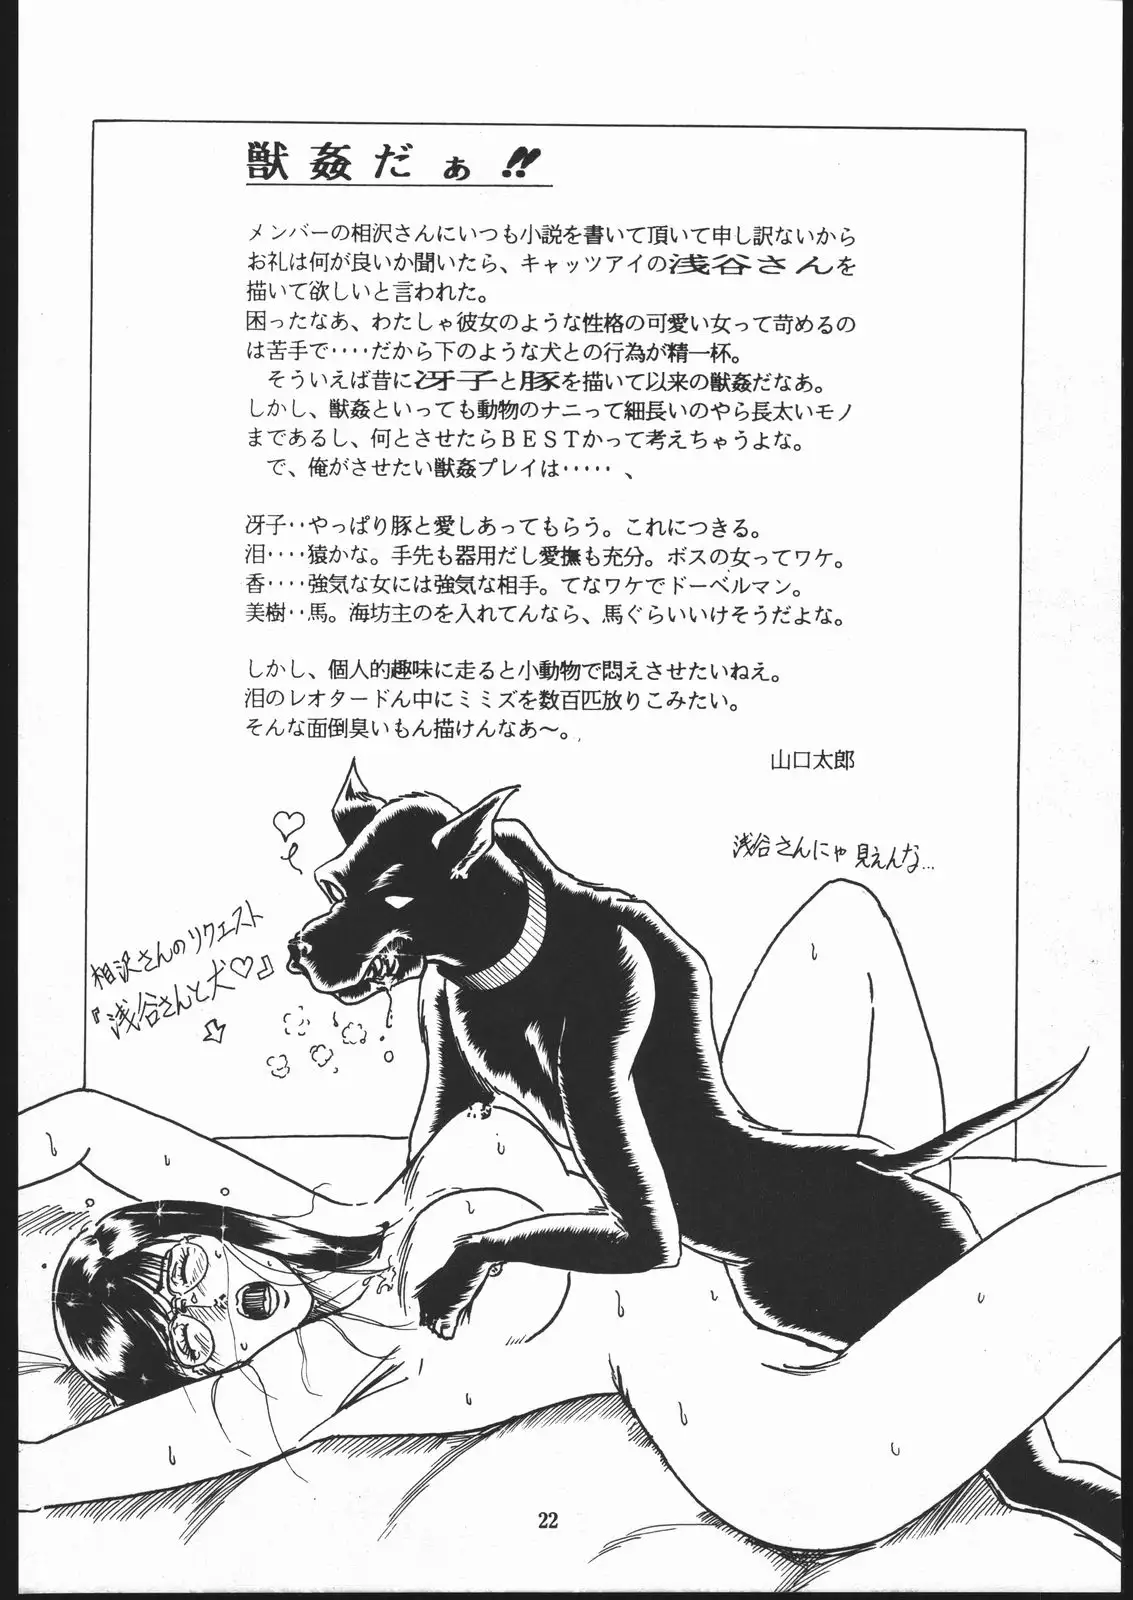 獣姦だぁ!!
メンバーの相沢さんにいつも小説を書いて頂いて申し訳ないから
お礼は何が良いか聞いたら、キャッツアイの浅谷さんを
描いて欲しいと言われた。
困ったなあ、わたしゃ彼女のような性格の可愛い女って苛めるの
は苦手で‥‥だから下のような犬との行為が精一杯。
そういえば昔に冴子と豚を描いて以来の獣姦だなあ。
しかし、獣姦といっても動物のナニって細長いのやら長太いモノ
まであるし、何とさせたらBESTかって考えちゃうよな。
で、俺がさせたい獣姦プレイは‥‥‥、
冴子‥やっぱり豚と愛しあってもらう。これにつきる。
泪‥‥猿かな。手先も器用だし愛撫も充分。ボスの女ってワケ。
香‥‥強気な女には強気な相手。てなワケでドーベルマン。
美樹‥馬。海坊主のを入れてんなら、馬ぐらいいけそうだよな。
しかし、個人的趣味に走ると小動物で悶えさせたいねえ。
泪のレオタードん中にミミズを数百匹放りこみたい。
そんな面倒臭いもん描けんなあ～。
山口太郎
浅谷さんにゃ見えんな…
相沢さんのリクエスト
『浅谷さんと犬♡』
22